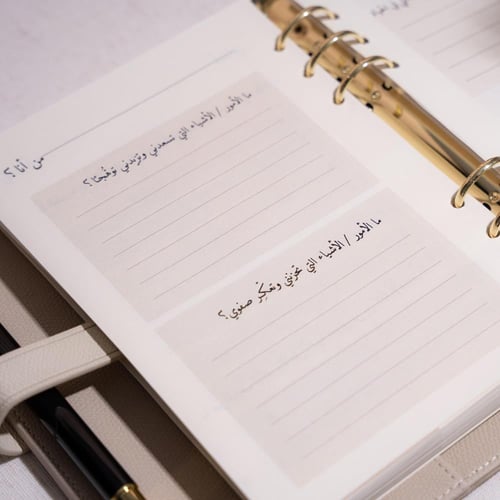 من أنا؟
ما الأمور / الأشياء التي تسعدني وتزيدني توهّجًا؟
ما الأمور / الأشياء التي تحزنني وتعكّر صفوي؟